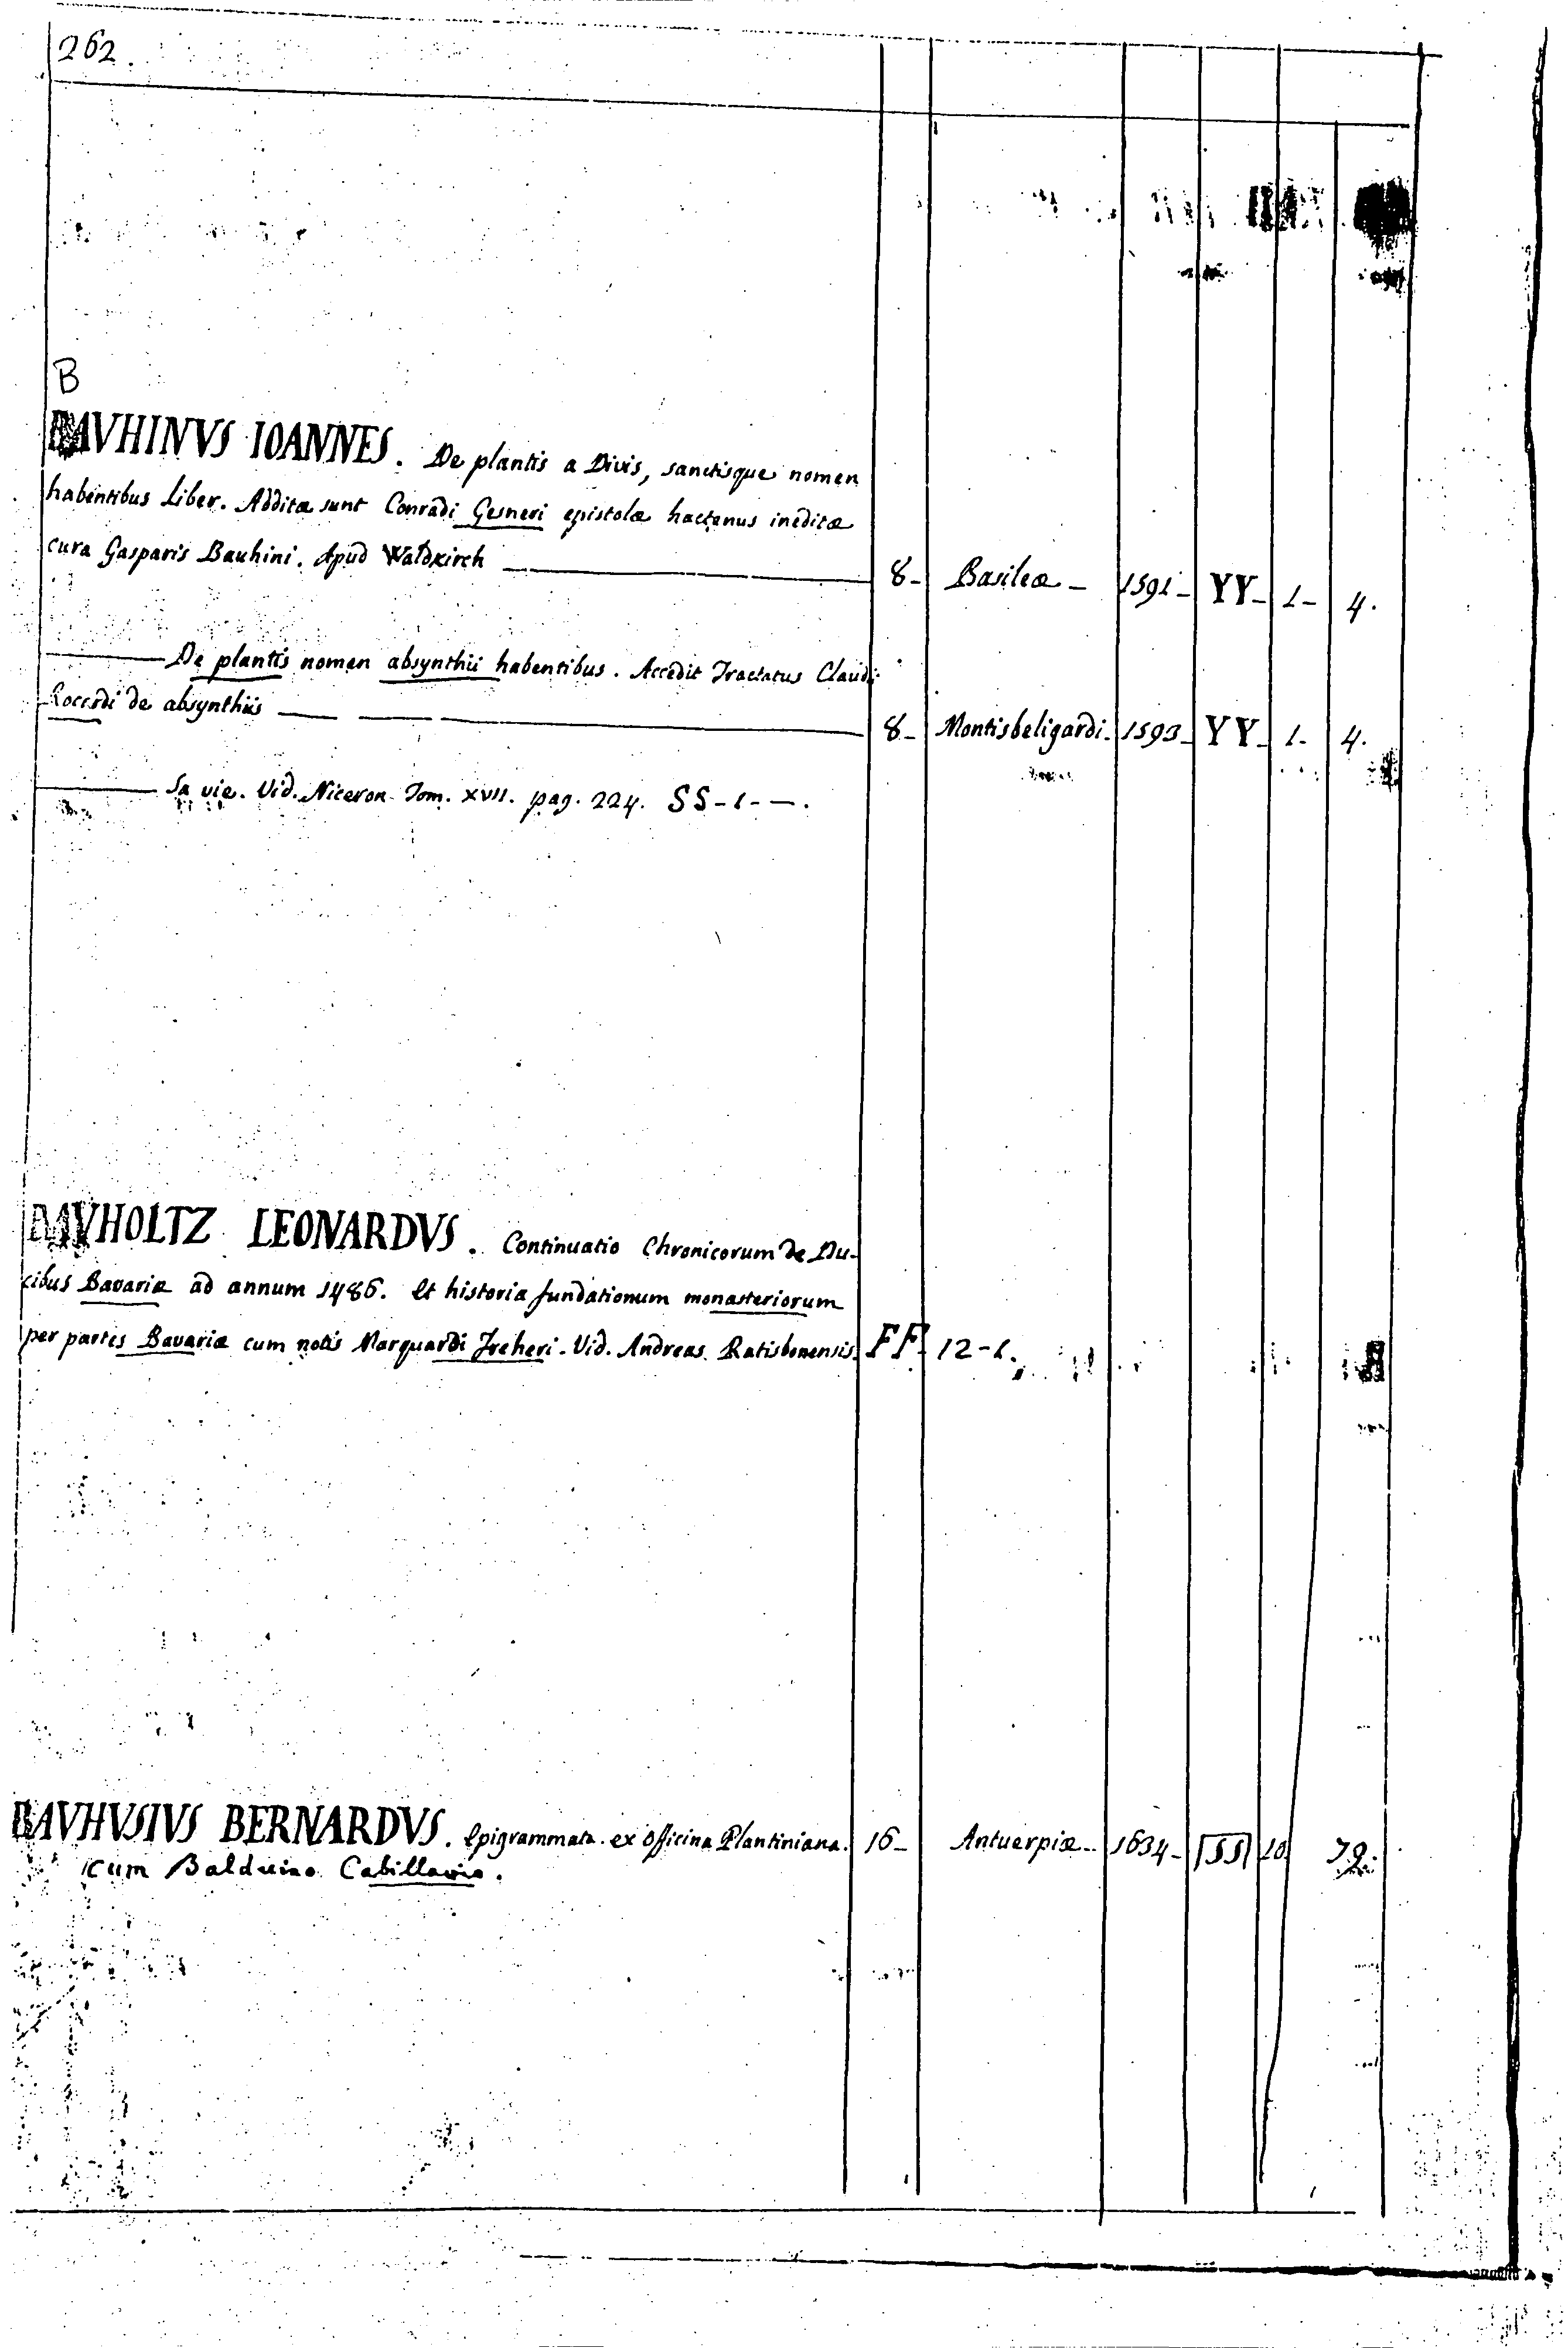 262.
B
BAVHINVS IOANNES. De plantis a Divis, sanctisque nomen
habentibus Liber. Additæ sunt Conradi Gesneri epistolæ hactenus ineditæ
cura Gasparis Bauhini. Apud Waldkirch — 8- Basileæ - 1591- YY- 1- 4.
— De plantis nomen absynthii habentibus. Accedit Tractatus Claudii
Roccardi de absynthiis — 8- Montisbeligardi- 1593- YY- 1- 4.
— Sa vie. Vid. Niceron Tom. XVII. pag. 224. SS-1-—.
BAVHOLTZ LEONARDVS. Continuatio Chronicorum de Du-
cibus Bavariæ ad annum 1486. et historia fundationum monasteriorum
per partes Bavariæ cum notis Marquardi Freheri. Vid. Andreas Ratisbonensis. FF- 12-1.
BAVHVSIVS BERNARDVS. Epigrammata. ex officina Plantiniana. 16- Antuerpiæ- 1634- SS 10
cum Balduino Cabillavio.